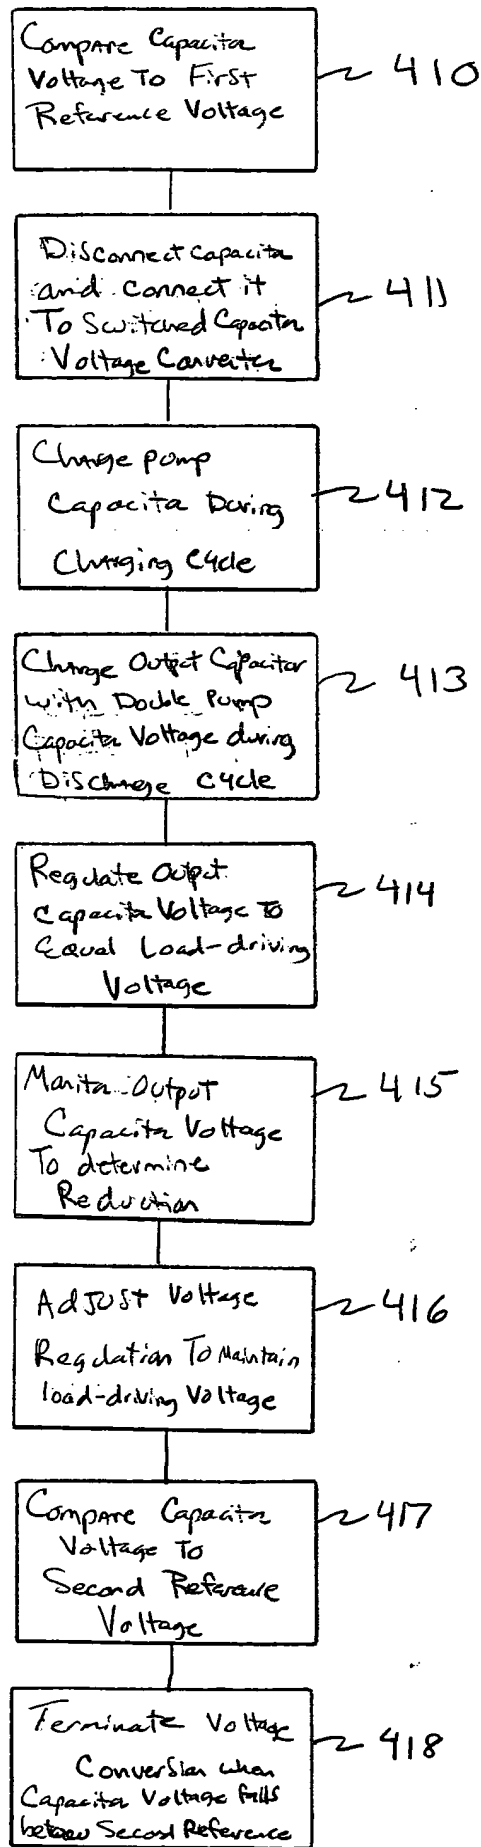 Compare Capacitor
Voltage To First
Reference Voltage
410
Disconnect Capacitor
and connect it
To Switched Capacitor
Voltage Converter
411
Charge pump
Capacitor During
Charging Cycle
412
Charge Output Capacitor
with Double Pump
Capacitor Voltage during
Discharge Cycle
413
Regulate Output
Capacitor Voltage To
Equal Load-driving
Voltage
414
Monitor Output
Capacitor Voltage
To determine
Reduction
415
Adjust Voltage
Regulation To Maintain
load-driving Voltage
416
Compare Capacitor
Voltage To
Second Reference
Voltage
417
Terminate Voltage
Conversion when
Capacitor Voltage falls
below Second Reference
418